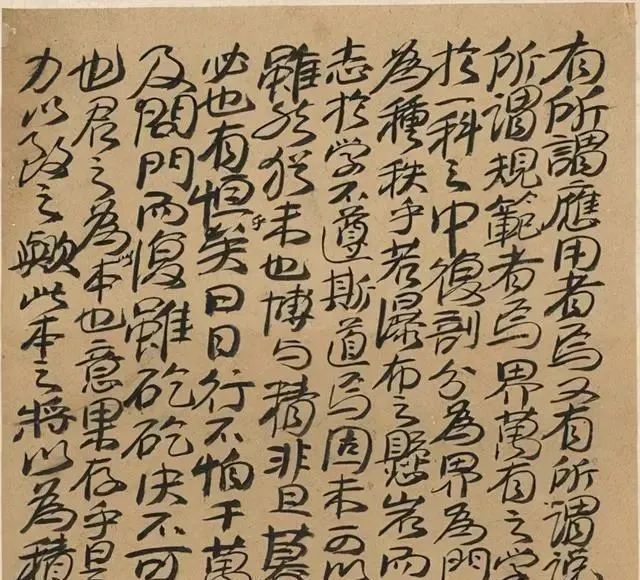 有所謂應用者焉又有所謂說
所謂規範者焉界萬有之学
於一科之中復剖分為界為門
為種秩乎若瀑布之懸岩而
志於学不遵斯道焉固未可以
雖然猶未也博与精非旦暮
必也有恒矣乎日日行不怕千萬
及閎門而復雖矻矻決不可
也君之為本也意果存乎是
力以致之歟此本之將以為積